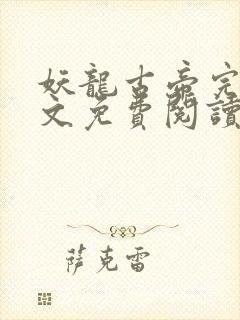 妖龍古帝完
文免費閱讀
萨克雷